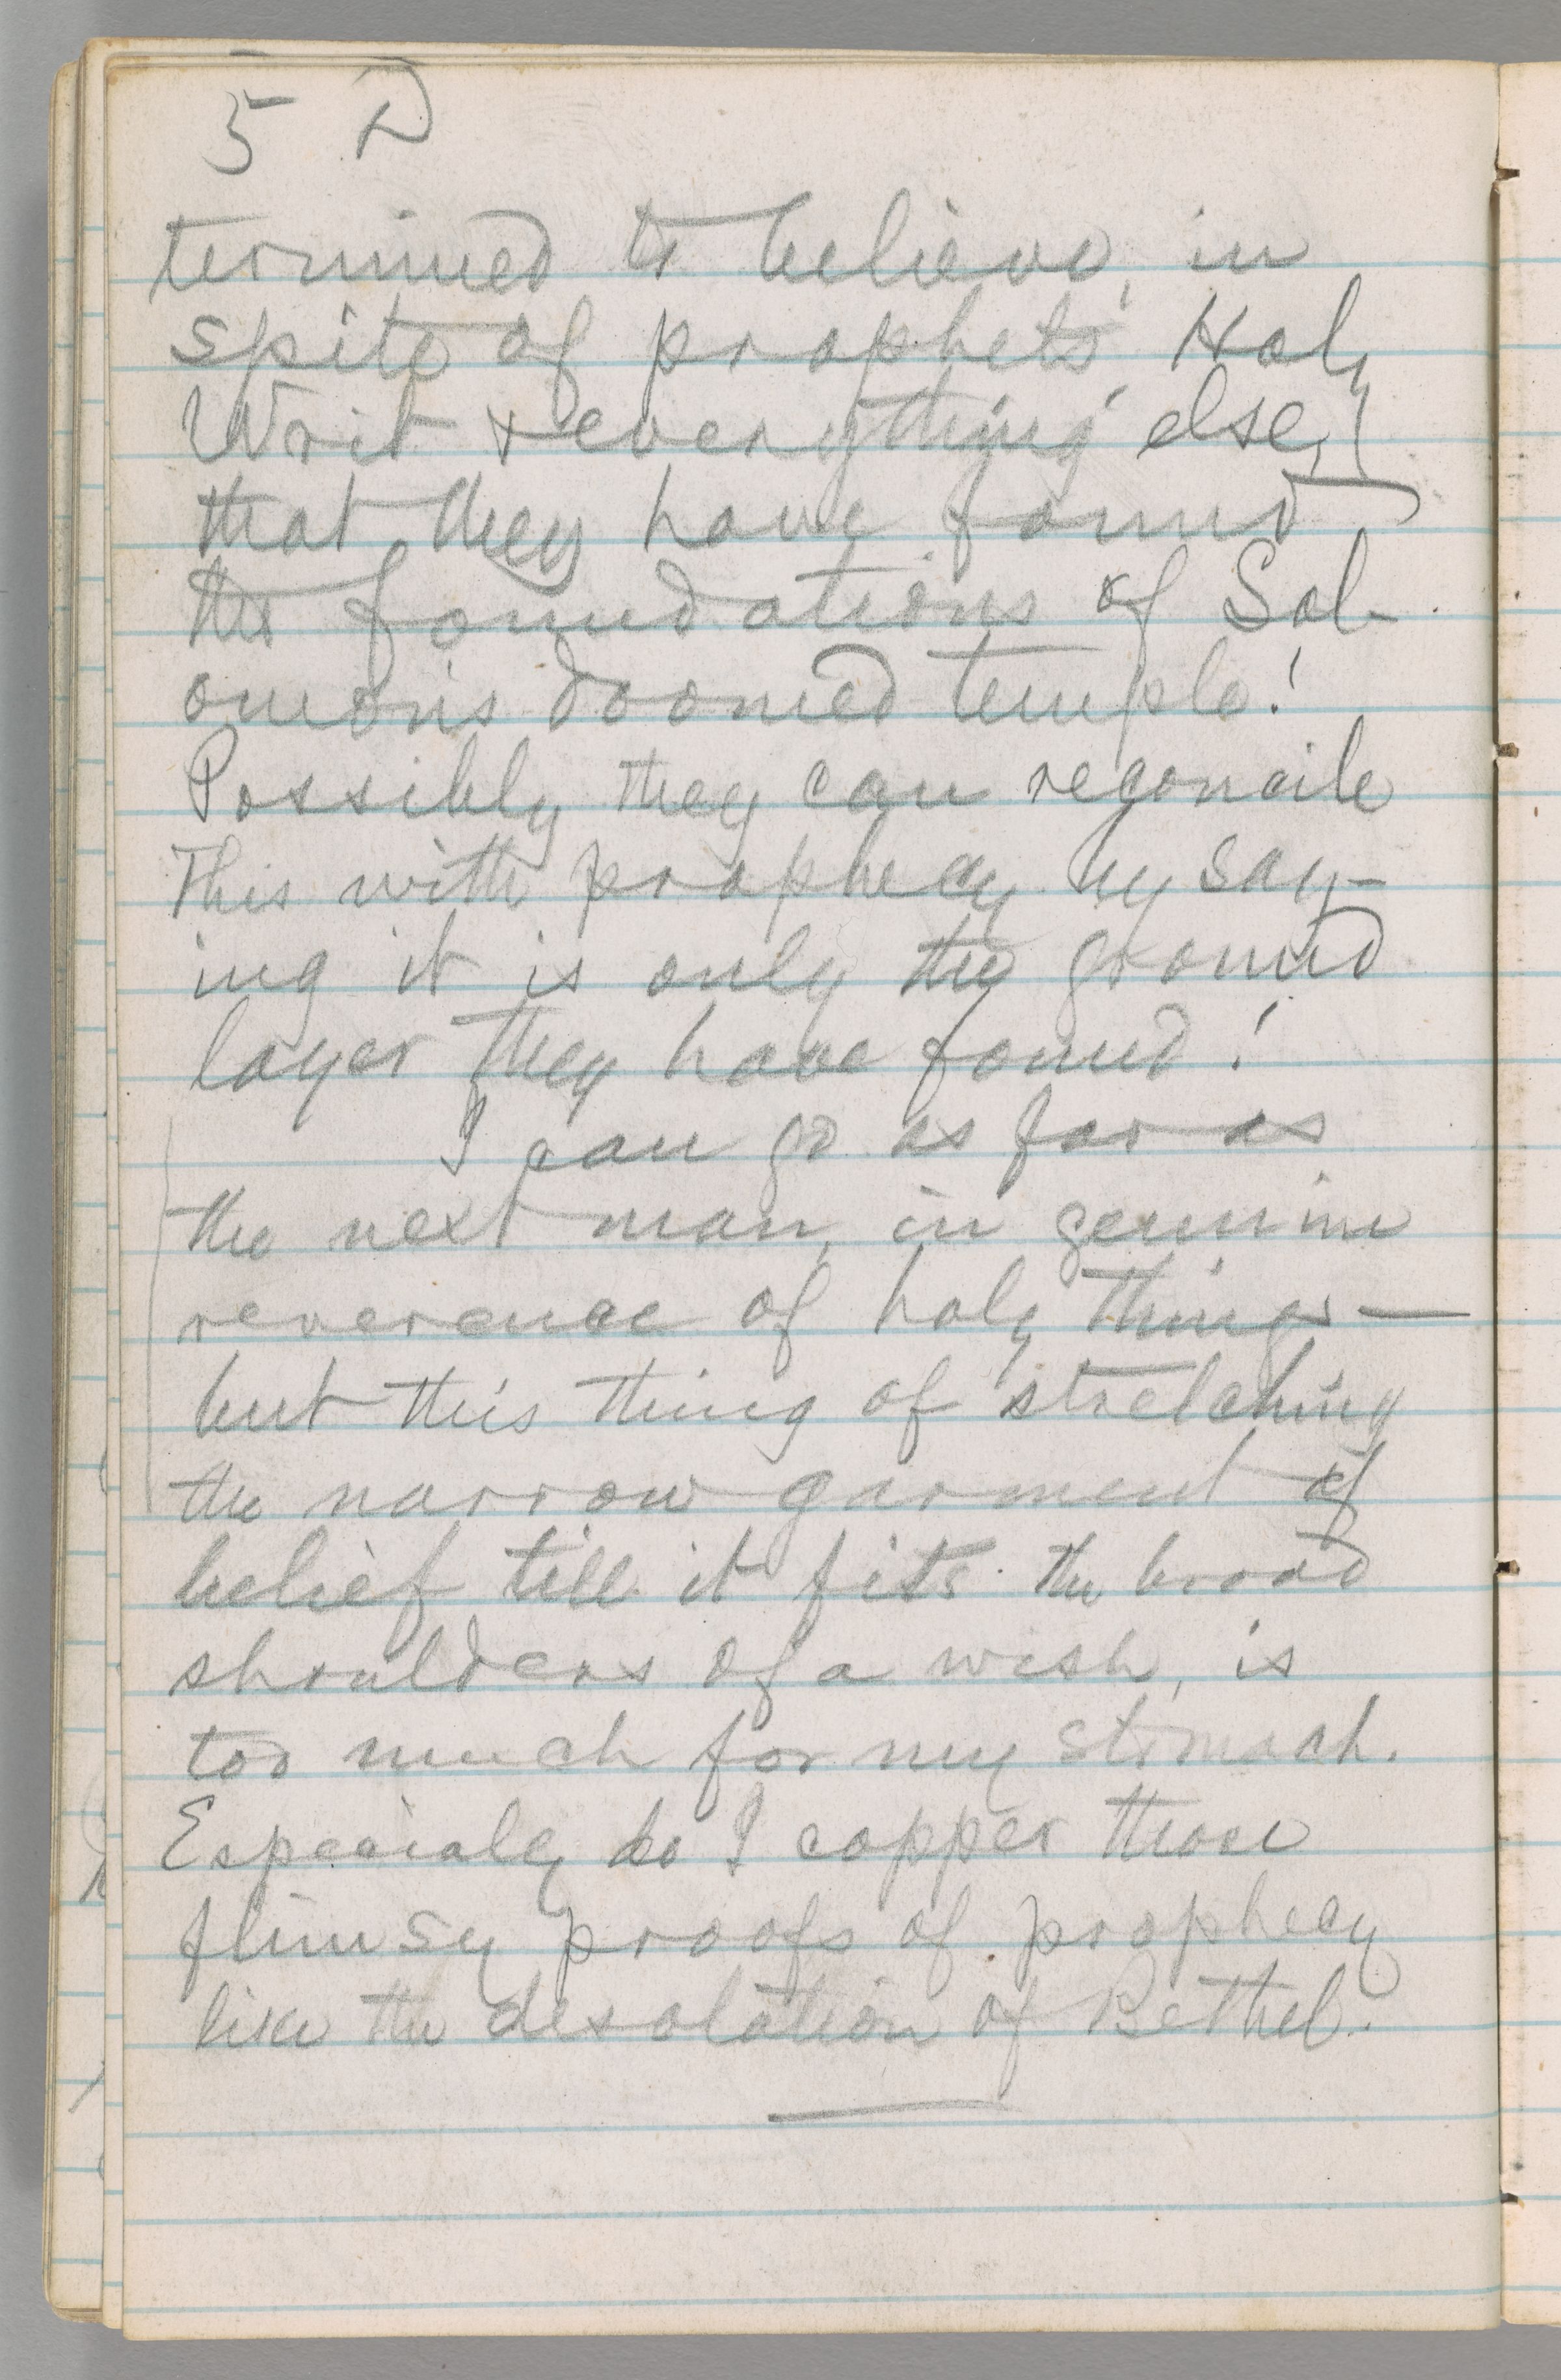 5 D
termined to believe, in
spite of prophets, Holy
Writ & everything else,
that they have found
the foundations of Sol-
omon's doomed temple!
Possibly they can reconcile
this with prophecy by say-
ing it is only the ground
layer they have found!
I can go as far as
the next man, in genuine
reverence of holy things—
but this thing of stretching
the narrow garment of
belief till it fits the broad
shoulders of a wish, is
too much for my stomach.
Especialy do I copper those
flimsy proofs of prophecy
like the desolation of Bethel.